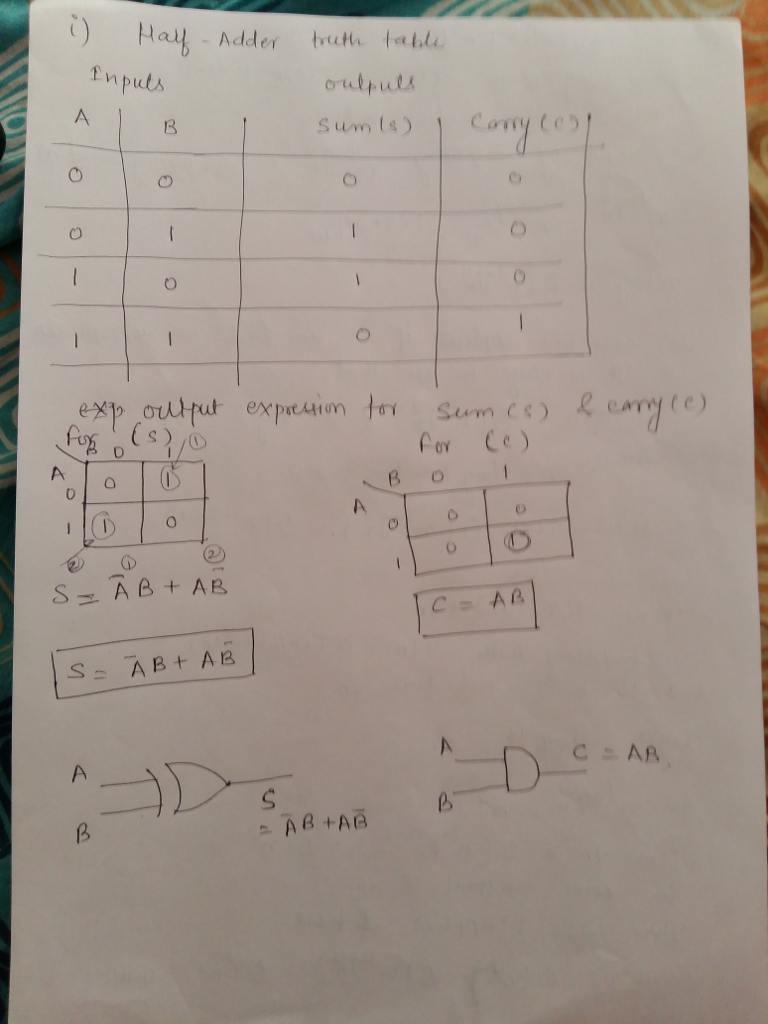 i) Half-Adder truth table
Inputs outputs
A B Sum(s) Carry(c)
0 0 0 0
0 1 1 0
1 0 1 0
1 1 0 1
exp output expression for sum(s) & carry(c)
for (s) ①
B 0 1
A
0 0 ①
1 ① 0
② ① ②
S = A̅B + AB̅
S = A̅B + AB̅
for (c)
B 0 1
A
0 0 0
1 0 ①
C = AB
A
B
S
= A̅B + AB̅
A
B
C = AB.